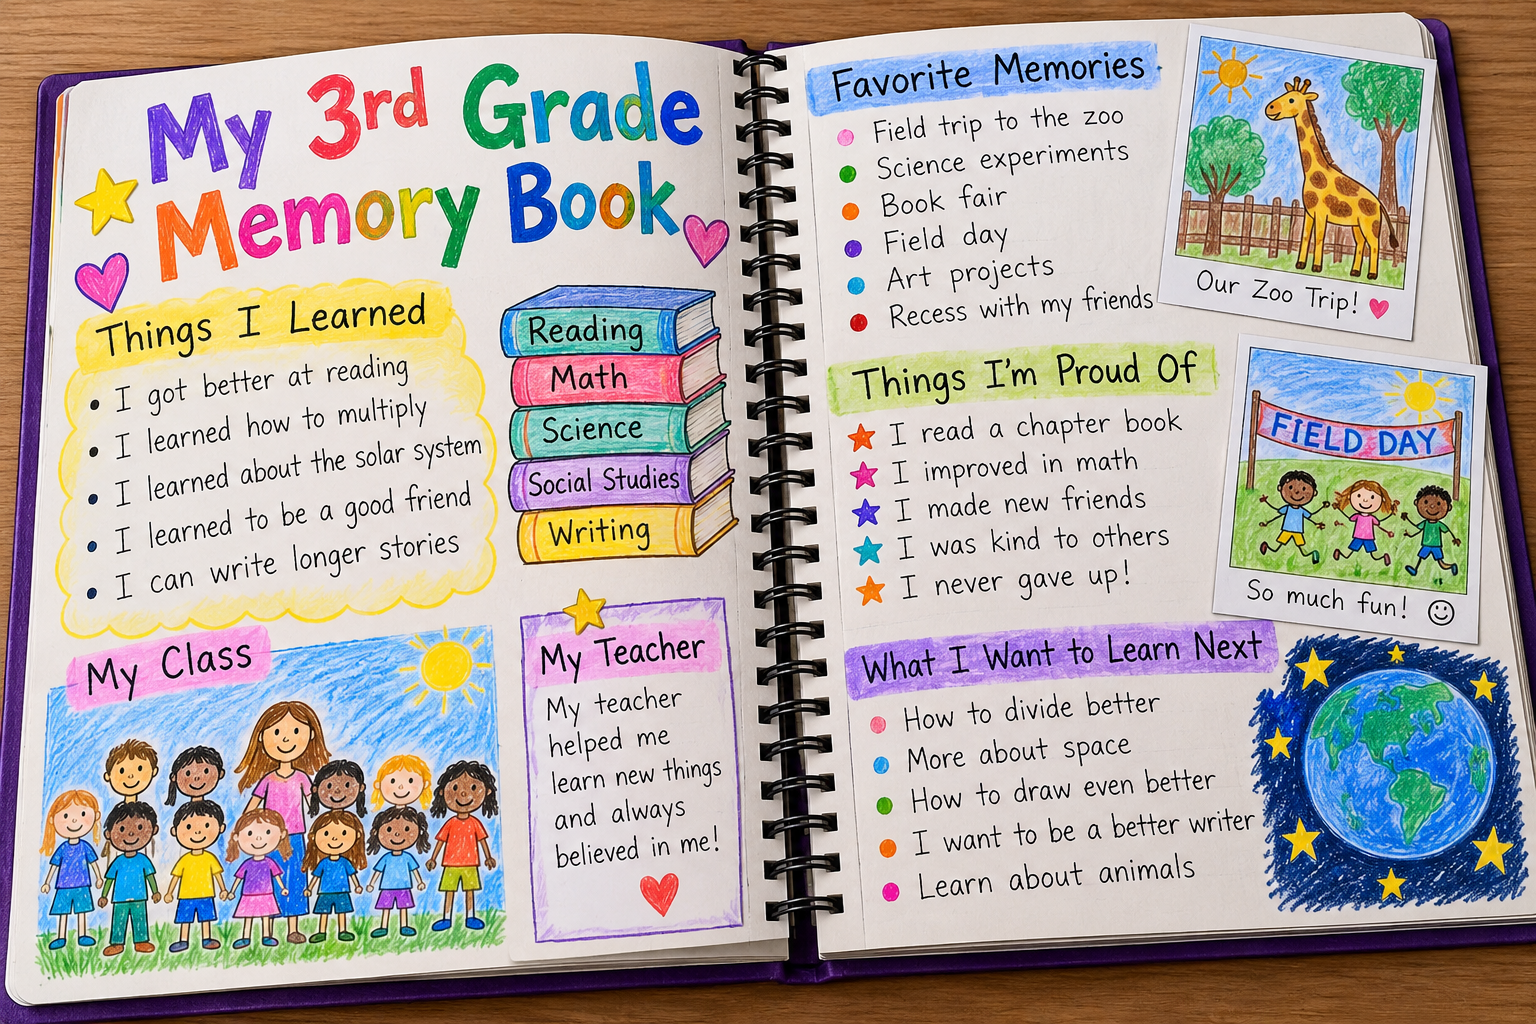 My 3rd Grade
Memory Book
Things I Learned
I got better at reading
I learned how to multiply
I learned about the solar system
I learned to be a good friend
I can write longer stories
Reading
Math
Science
Social Studies
Writing
My Class
My Teacher
My teacher
helped me
learn new things
and always
believed in me!
Favorite Memories
Field trip to the zoo
Science experiments
Book fair
Field day
Art projects
Recess with my friends
Our Zoo Trip!
Things I'm Proud Of
I read a chapter book
I improved in math
I made new friends
I was kind to others
I never gave up!
FIELD DAY
So much fun!
What I Want to Learn Next
How to divide better
More about space
How to draw even better
I want to be a better writer
Learn about animals